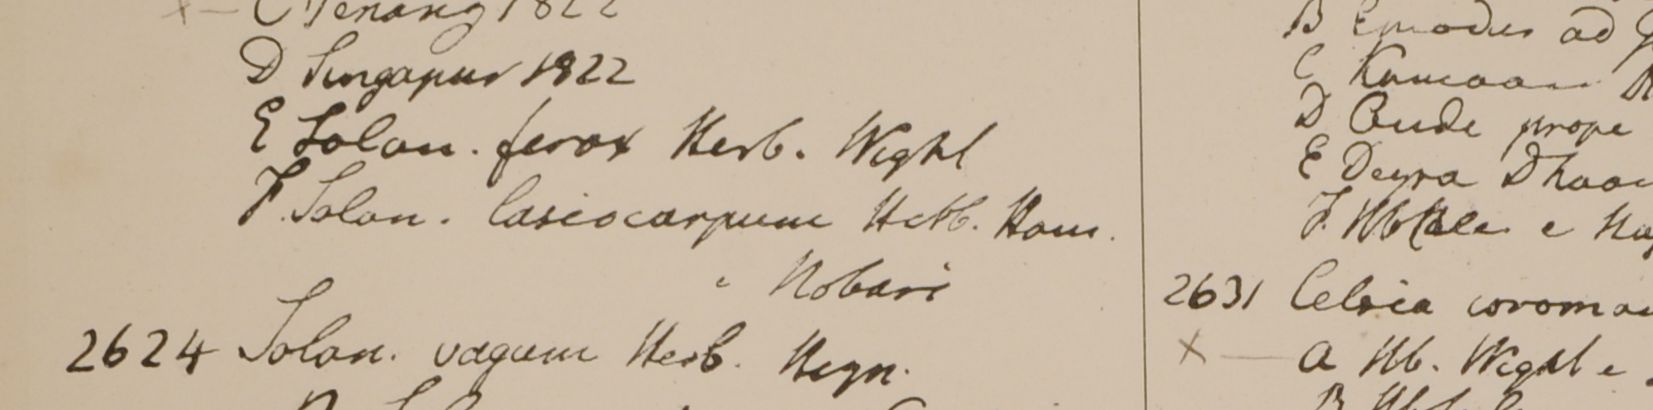 × — C Penang 1822
D Singapur 1822
E Solan. ferox Herb. Wight
F. Solan. lasiocarpum Herb. Ham.
e Nobari
2624 Solan. vagum Herb. Heyn.
B Emodus ad
C Kamaon
D Oude prope
E Deyra Dhoon
F. Hb Calc. e
2631 Celsia coroma
× — A Hb. Wight e
B